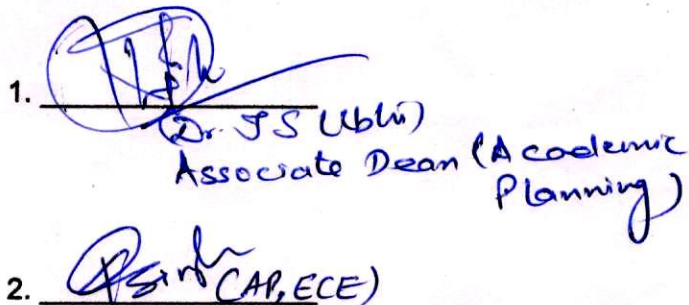 1.
(Dr. J S Ubhi)
Associate Dean (Academic
Planning)
2. (AP, ECE)